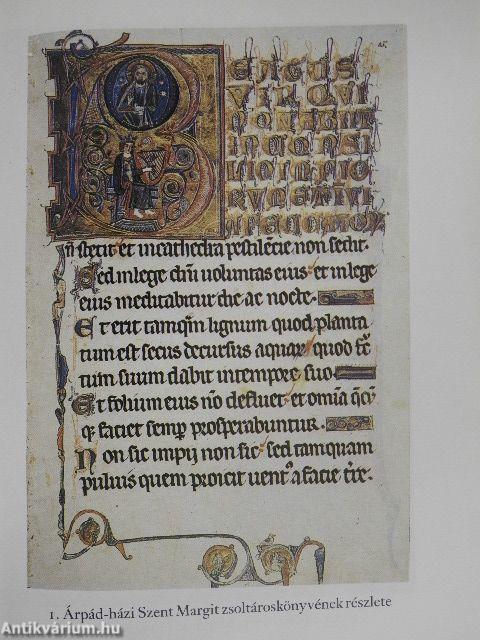 BEATUS
VIR QUI
NON ABIIT
IN CONSI
LIO IMPIO
RVM ET IN VI
A PECCATOR
ñ stetit et in cathedra pestilẽcie non sedit·
Sed in lege dñi uoluntas eius· et in lege
eius meditabitur die ac nocte·
Et erit tamqm̃ lignum quod planta
tum est secus decursus aquaꝝ· quod
tum suum dabit in tempore suo
Et folium eius nõ defluet· et omĩa
faciet semꝑ prosperabuntur·
Non sic impij non sic· sed tamquam
puluis quem proicit uentꝰ a facie tre·
1. Árpád-házi Szent Margit zsoltároskönyvének részlete
Antikvárium.hu